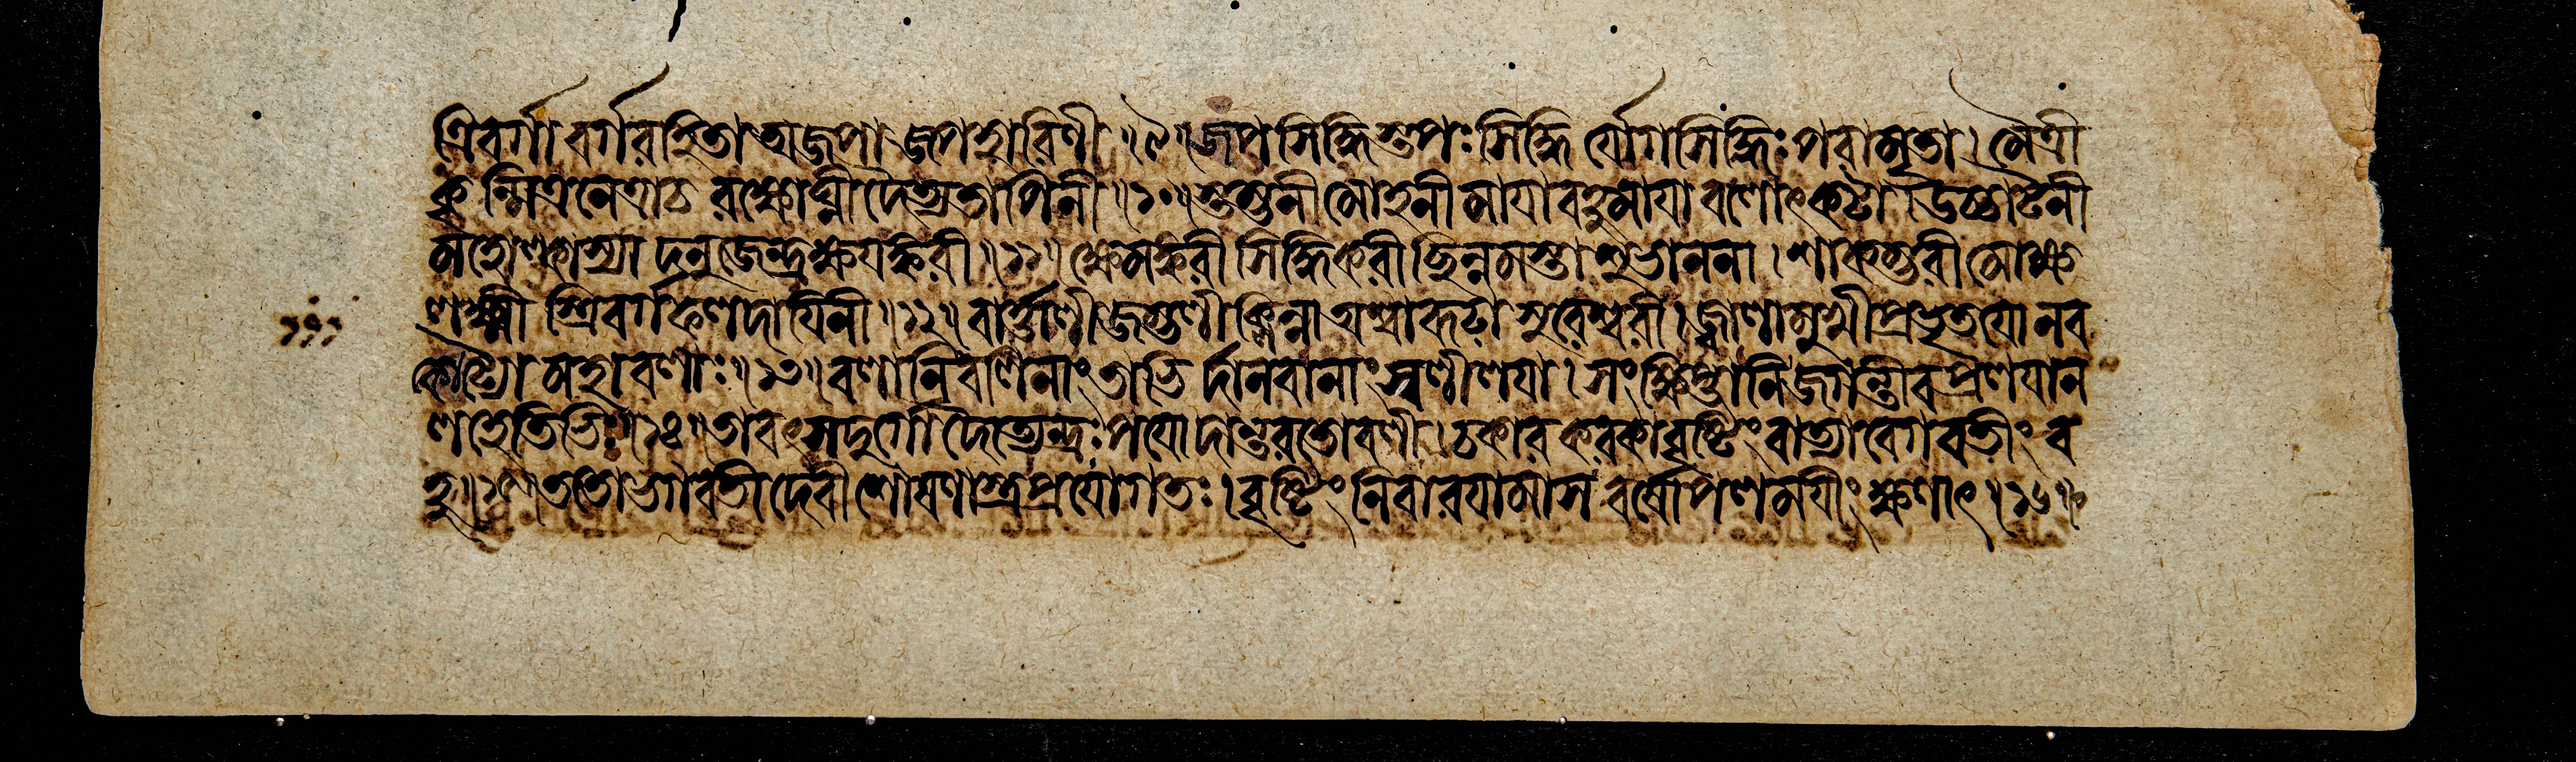 ত্রিবর্গা বর্গরহিতা অজপা জপহারিণী ॥৯॥ জপসিদ্ধিস্তপঃসিদ্ধি র্যোগসিদ্ধিঃ পরামৃতা । মৈত্রী
কৃন্মিত্রনেত্রাচ রক্ষোঘ্নী দৈত্যতাপিনী ॥১০॥ স্তম্ভনী মোহনী মাযা বহুমাযা বলোৎকটা । উচ্চাটনী
মহোল্কাস্যা দনুজেন্দ্রক্ষযঙ্করী ॥১১॥ ক্ষেমঙ্করী সিদ্ধিকরী ছিন্নমস্তা শুভাননা । শাকম্ভরী মোক্ষ
লক্ষ্মী স্ত্রিবর্গফলদাযিনী ॥১২॥ বার্ত্তালী জম্ভলী ক্লিন্না অশ্বারূঢা সুরেশ্বরী । জ্বালামুখীপ্রভৃতযো নব
কোট্যো মহাবলাঃ ॥১৩॥ বলানি বলিনাং তাভি র্দানবানাং স্বলীলযা । সংক্ষিপ্তানি জগন্তীব প্রলযান
লহেতিভিঃ ॥১৪॥ তাবৎ সদুর্গো দৈত্যেন্দ্রঃ পযোদান্তরতো বলী । চকার করকাবৃষ্টিং বাত্যাবেগবতীং ব
হু ॥১৫॥ ততো ভগবতী দেবী শোষণাস্ত্রপ্রযোগতঃ । বৃষ্টিং নিবারযামাস বর্ষোপলমযীং ক্ষণাৎ ॥১৬॥